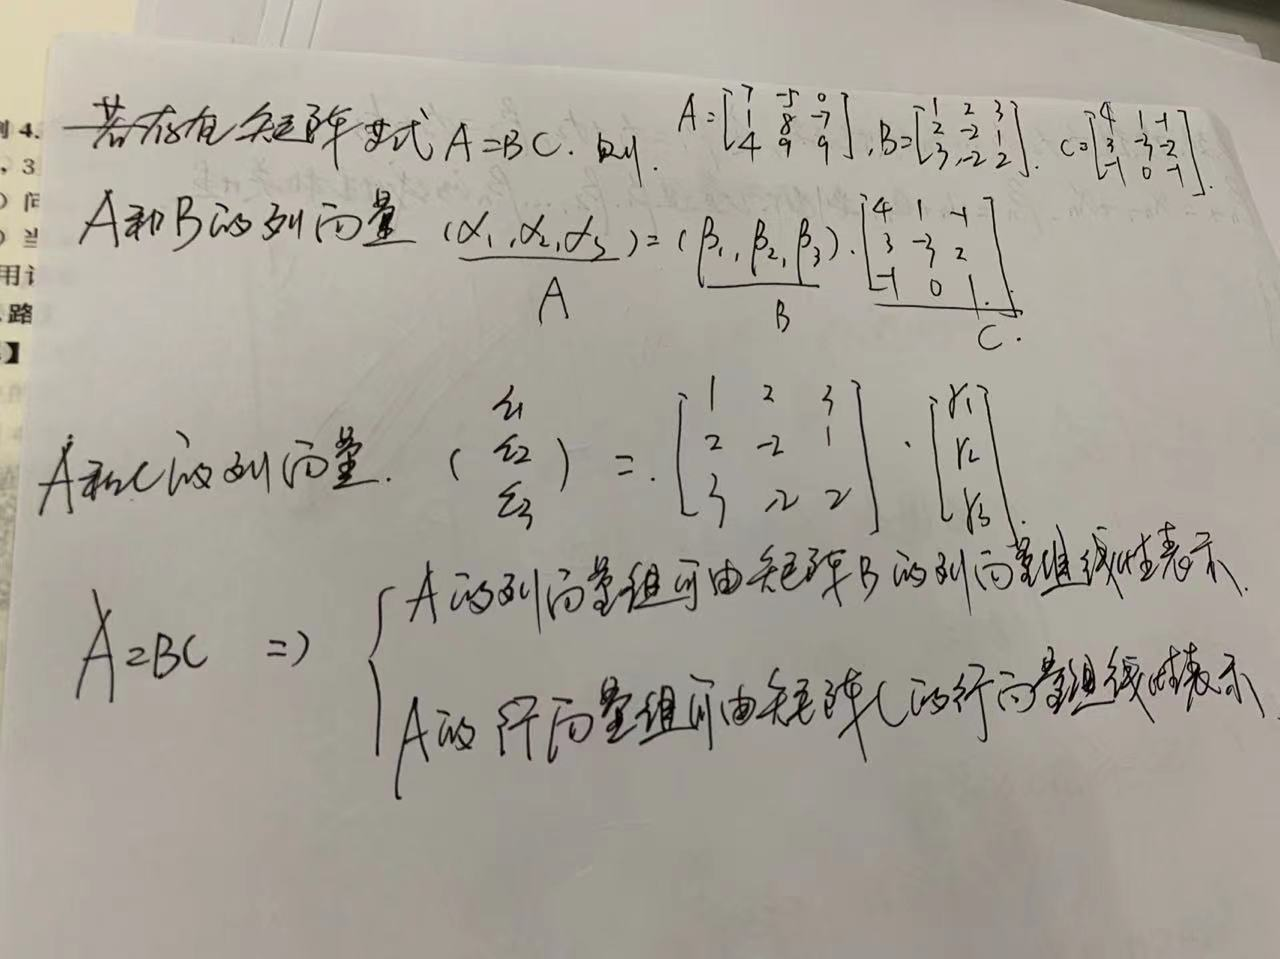 若存在矩阵等式 A=BC. 则. A=[7 -5 0; 1 8 -7; 4 9 9], B=[1 2 3; 2 -2 1; 3 -2 2]. C=[4 1 -1; 3 -3 -2; -1 0 -1].
A和B的列向量 (α1, α2, α3) = (β1, β2, β3) · [4 1 -1; 3 -3 2; -1 0 1]
A B C.
A和C的列向量. (ξ1 ξ2 ξ3) = . [1 2 3; 2 -2 1; 3 -2 2] · [γ1 γ2 γ3].
A=BC => { A的列向量组可由矩阵B的列向量组线性表示.
A的行向量组可由矩阵C的行向量组线性表示.
例 4.
, 3
) 问
) 当
用
路
】